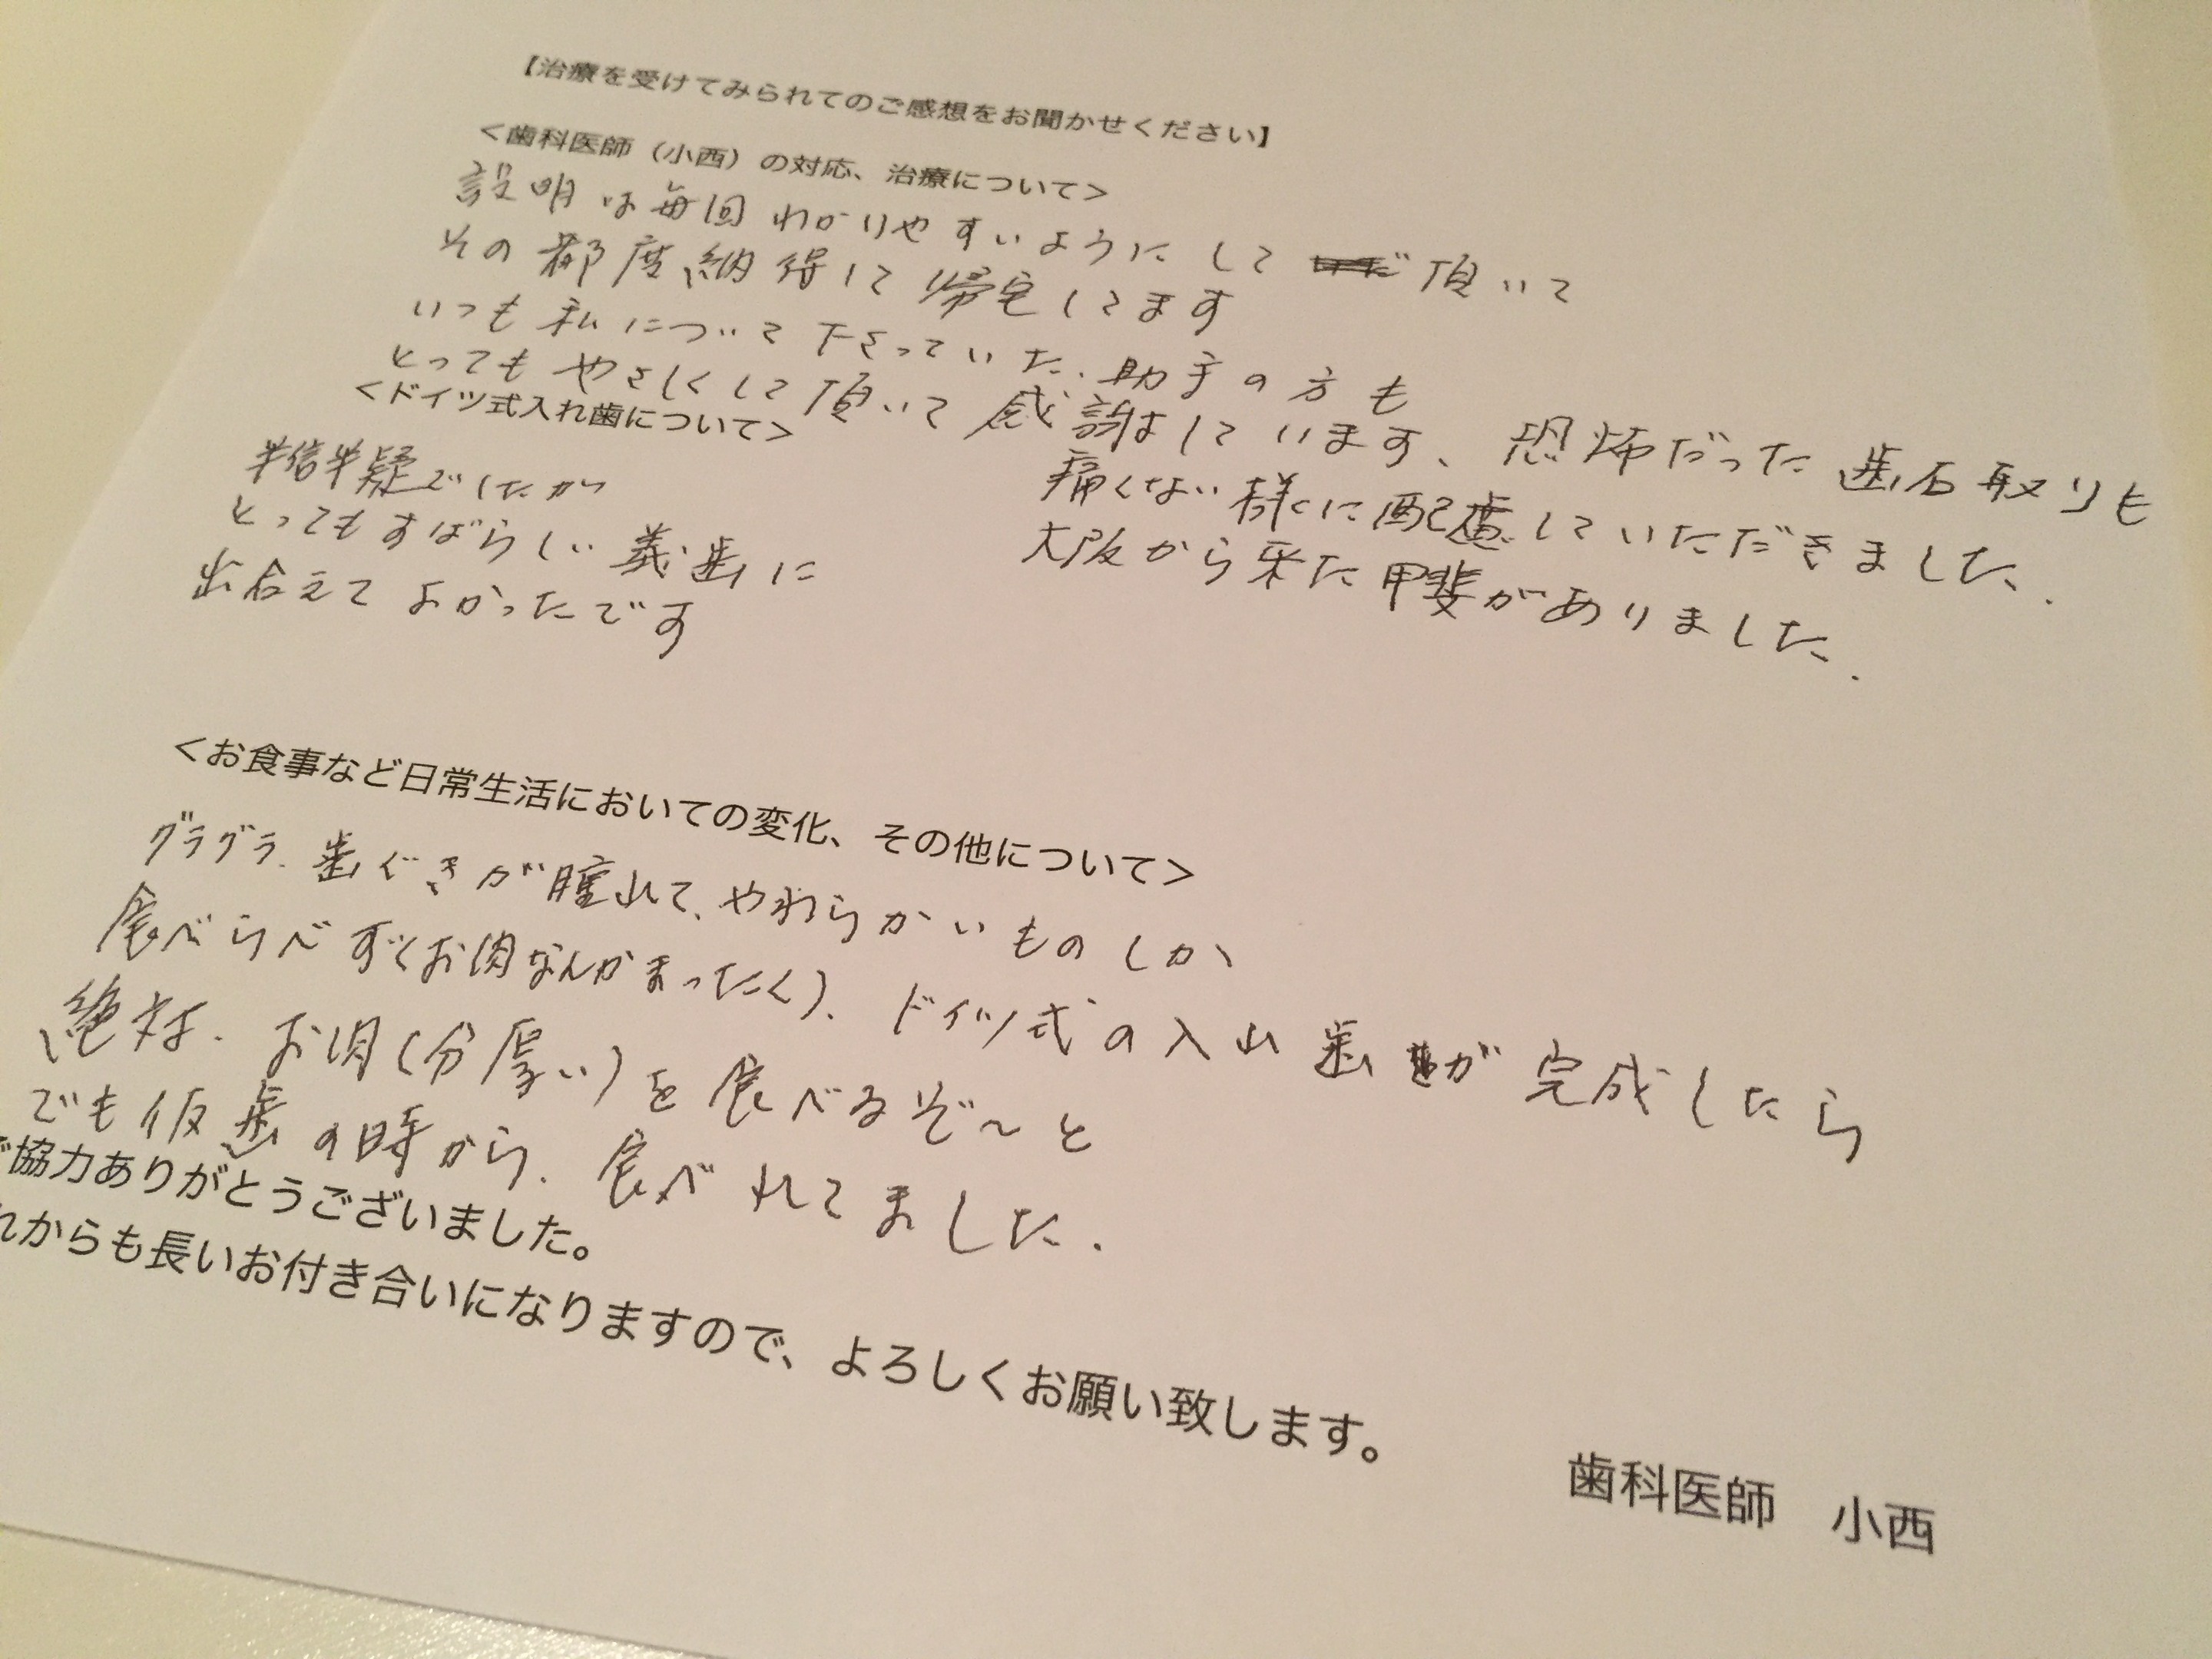 【治療を受けてみられてのご感想をお聞かせください】
＜歯科医師（小西）の対応、治療について＞
説明は毎回わかりやすいようにして頂いて
その都度、納得して帰宅してます
いつも私について下さっていた、助手の方も
とってもやさしくして頂いて感謝しています、恐怖だった歯石取りも
痛くない様に配慮していただきました、
大阪から来た甲斐がありました、
＜ドイツ式入れ歯について＞
半信半疑でしたが
とってもすばらしい義歯に
出合えてよかったです
＜お食事など日常生活においての変化、その他について＞
グラグラ、歯ぐきが腫れて、やわらかいものしか
食べらべず（お肉なんかまったく）、ドイツ式の入れ歯が完成したら
絶対、お肉（分厚い）を食べるぞ〜と
でも仮歯の時から、食べれてました．
ご協力ありがとうございました。
れからも長いお付き合いになりますので、よろしくお願い致します。
歯科医師　小西